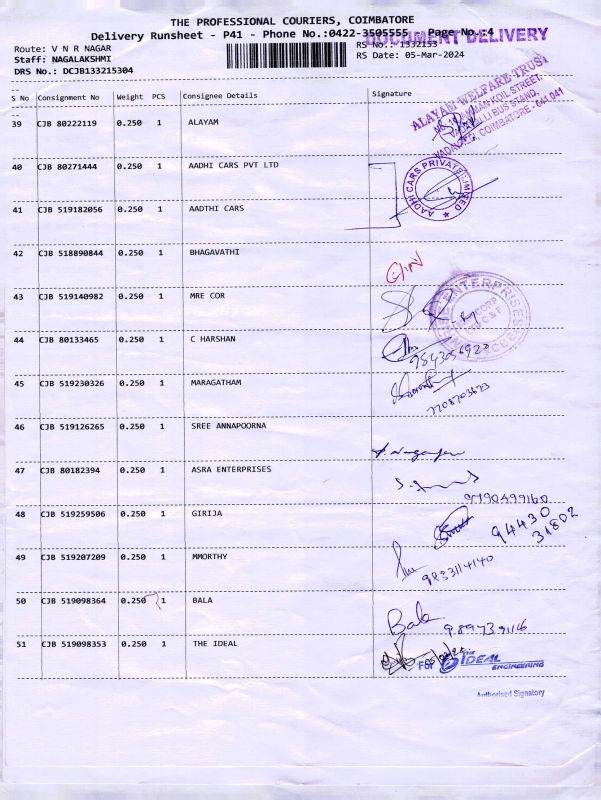 THE PROFESSIONAL COURIERS, COIMBATORE
Delivery Runsheet - P41 - Phone No.:0422-3505555 Page No.:4
DOCUMENT DELIVERY
Route: V N R NAGAR RS No.: 1332153
Staff: NAGALAKSHMI RS Date: 05-Mar-2024
DRS No.: DCJB133215304
S No Consignment No Weight PCS Consignee Details Signature
39 CJB 80222119 0.250 1 ALAYAM
ALAYAM WELFARE TRUST
BUS STAND,
COIMBATORE - 641 041
40 CJB 80271444 0.250 1 AADHI CARS PVT LTD
AADHI CARS PRIVATE LIMITED
41 CJB 519182056 0.250 1 AADTHI CARS
42 CJB 518890844 0.250 1 BHAGAVATHI
43 CJB 519140982 0.250 1 MRE COR
ENTERPRISES
44 CJB 80133465 0.250 1 C HARSHAN
9843056920
45 CJB 519230326 0.250 1 MARAGATHAM
7708703623
46 CJB 519126265 0.250 1 SREE ANNAPOORNA
47 CJB 80182394 0.250 1 ASRA ENTERPRISES
9790499160
48 CJB 519259506 0.250 1 GIRIJA
94430
31802
49 CJB 519207209 0.250 1 MMORTHY
9833114140
50 CJB 519098364 0.250 1 BALA
Bala
9897391116
51 CJB 519098353 0.250 1 THE IDEAL
For THE IDEAL ENGINEERING
Authorised Signatory